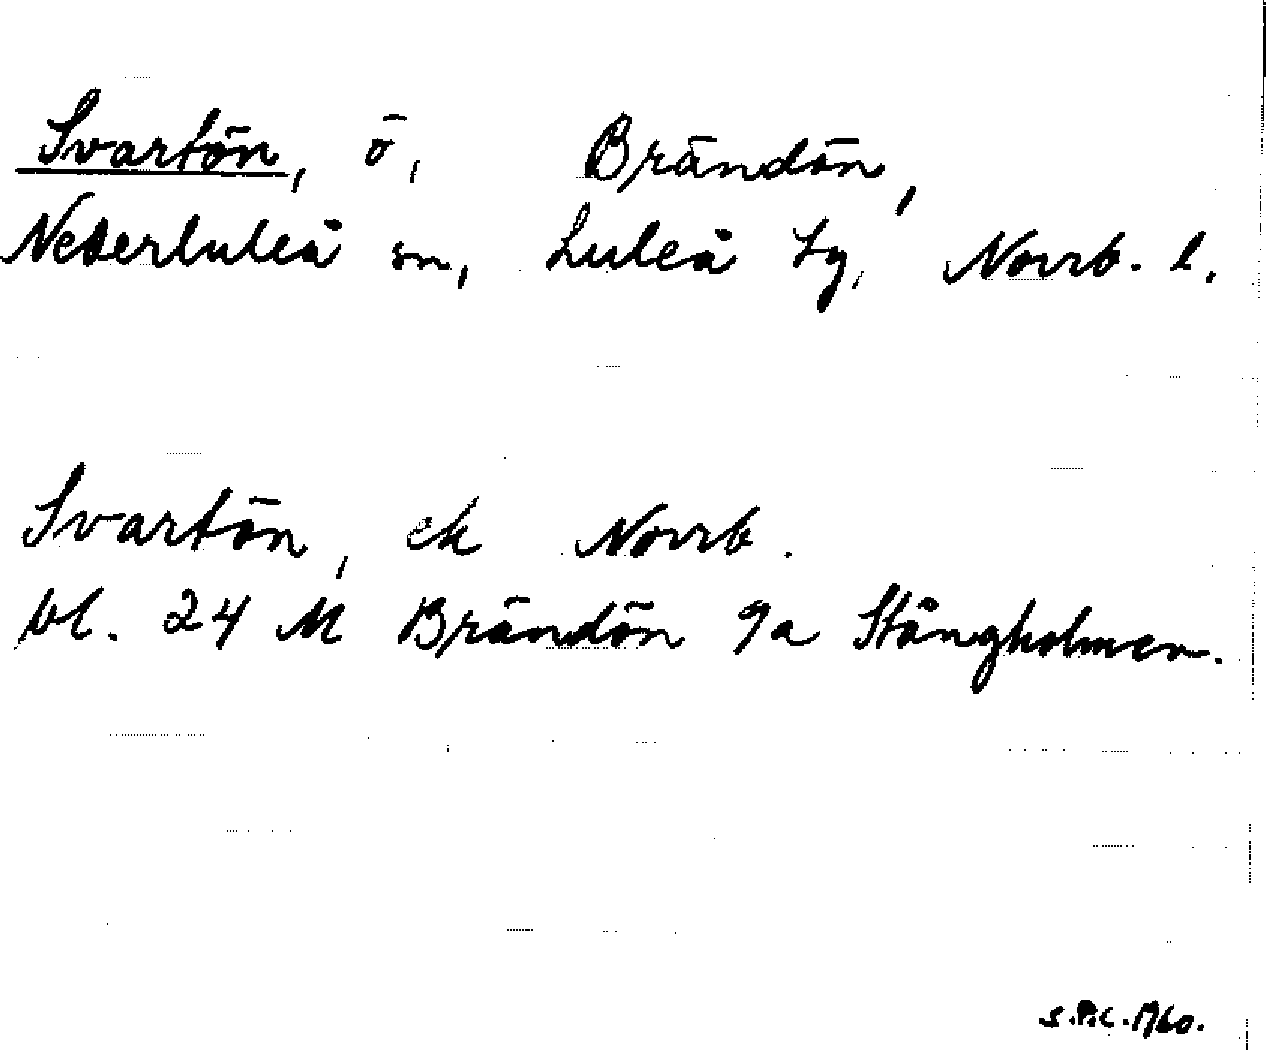 Svartön, ö, Brändön,
Nederluleå sn, Luleå tg, Norrb. l.
Svartön, ek Norrb.
bl. 24 M Brändön 9a Stångholmen.
S.P.C. 1960.